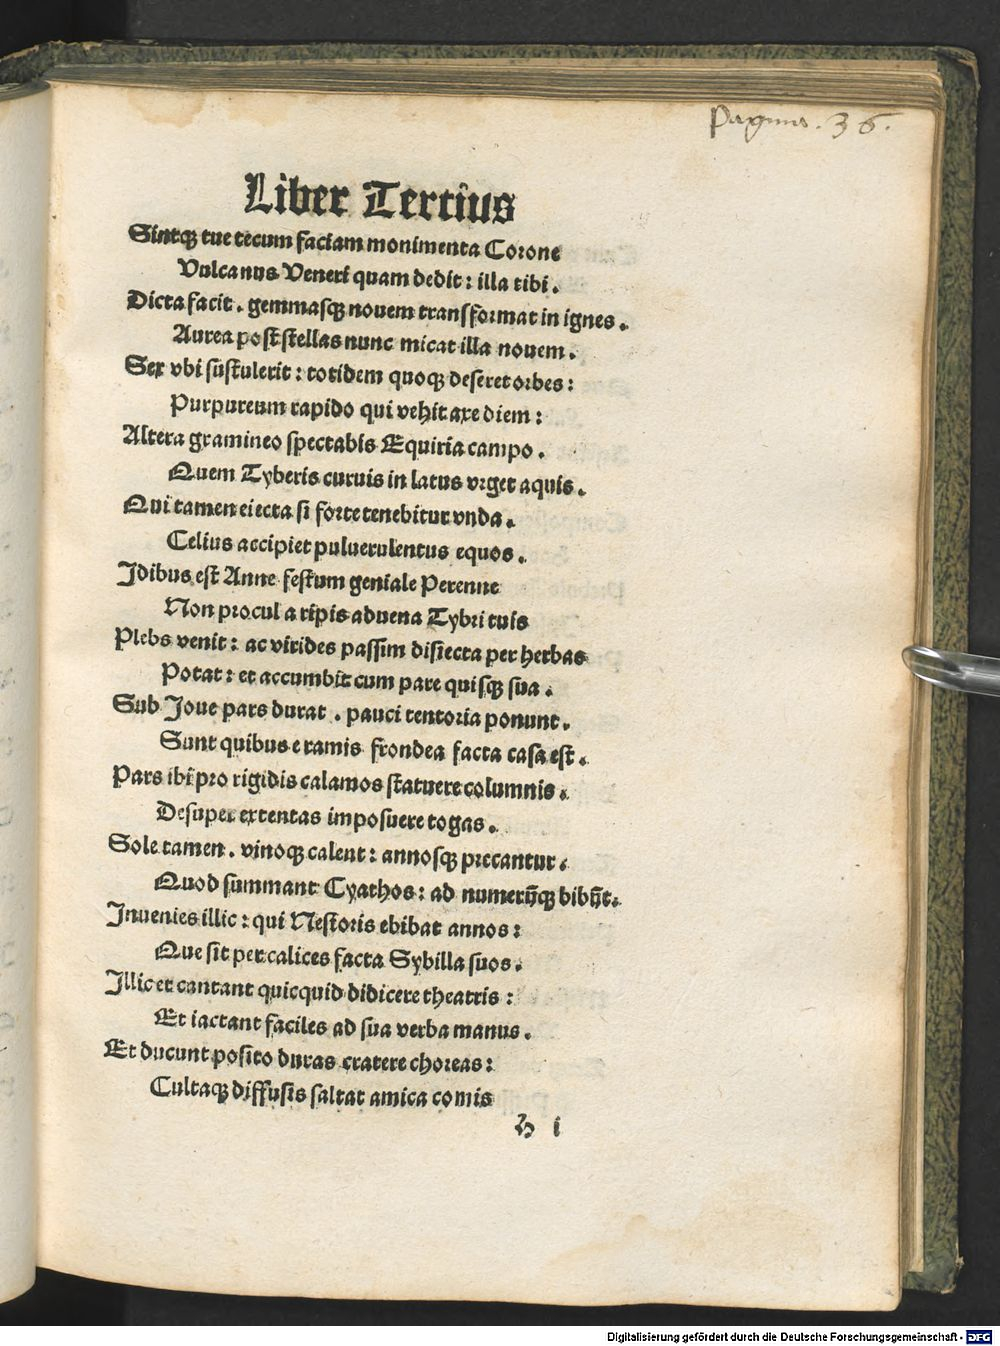 Pagina. 36.
Liber Tertius
Sintqꝫ tue tecum faciam monimenta Corone
Vulcanus Veneri quam dedit: illa tibi.
Dicta facit. gemmasqꝫ nouem transformat in ignes.
Aurea post stellas nunc micat illa nouem.
Sex vbi sustulerit: totidem quoqꝫ deseret orbes:
Purpureum rapido qui vehit axe diem:
Altera gramineo spectabis Equiria campo.
Quem Tyberis curuis in latus vrget aquis.
Qui tamen eiecta si forte tenebitur vnda.
Celius accipiet puluerulentus equos.
Idibus est Anne festum geniale Perenne
Non procul a ripis aduena Tybri tuis
Plebs venit: ac virides passim disiecta per herbas
Potat: et accumbit cum pare quisqꝫ sua.
Sub Ioue pars durat. pauci tentoria ponunt.
Sunt quibus e ramis frondea facta casa est.
Pars ibi pro rigidis calamos statuere columnis.
Desuper extentas imposuere togas.
Sole tamen. vinoqꝫ calent: annosqꝫ precantur.
Quod summant Cyathos: ad numerūqꝫ bibūt.
Inuenies illic: qui Nestoris ebibat annos:
Que sit per calices facta Sybilla suos.
Illic et cantant quicquid didicere theatris:
Et iactant faciles ad sua verba manus.
Et ducunt posito duras cratere choreas:
Cultaqꝫ diffusis saltat amica comis
h i
Digitalisierung gefördert durch die Deutsche Forschungsgemeinschaft - DFG